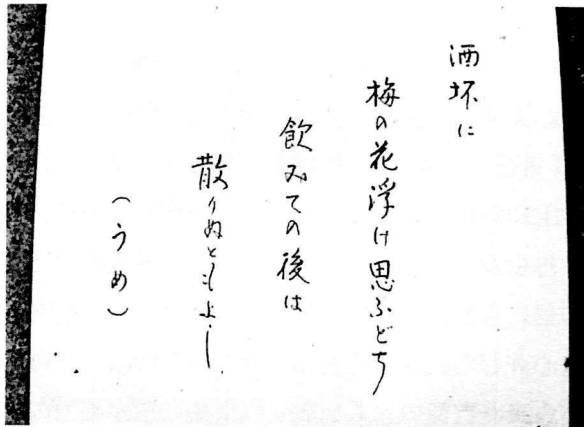 酒坏に
梅の花浮け思ふどち
飲みての後は
散りぬともよし
(うめ)